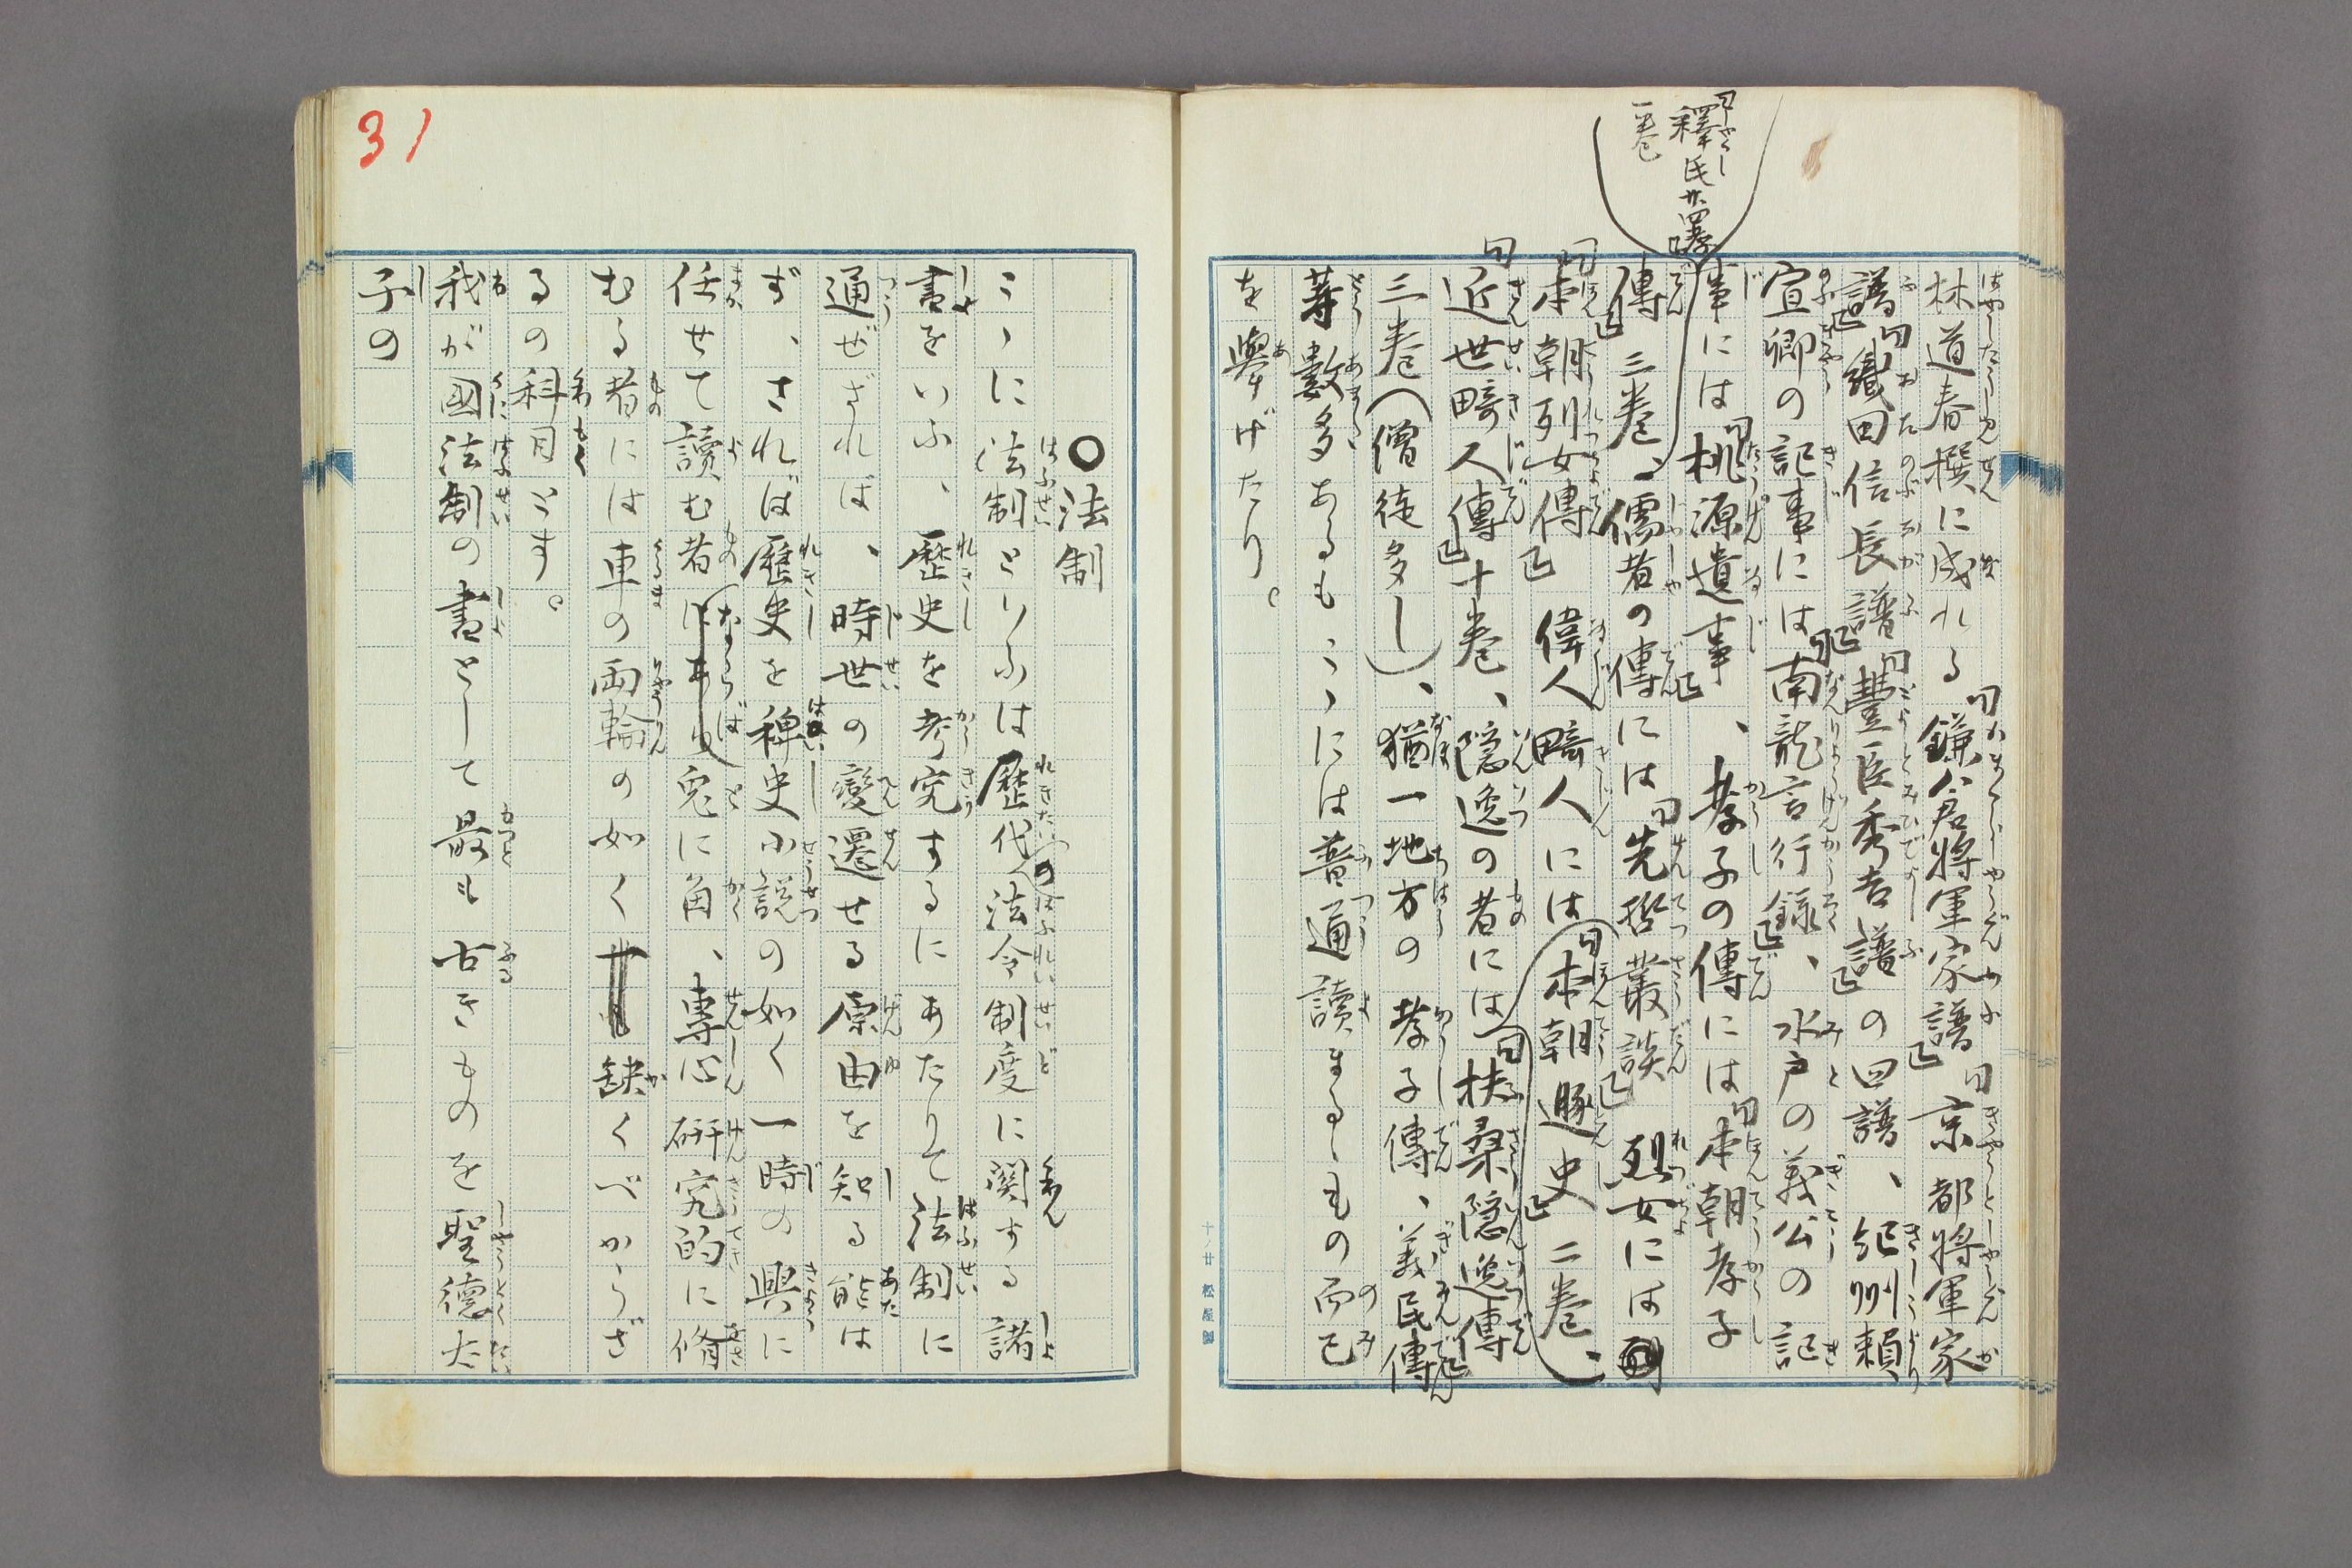 釋氏廿四孝
一卷
林道春撰に成れる「鎌倉將軍家譜」「京都將軍家
譜」「織田信長譜」「豐臣秀吉譜」の四譜、紀州賴
宣卿の記事には「南龍言行錄」、水戶の義公の記
事には「桃源遺事」、孝子の傳には「本朝孝子
傳」三卷、儒者の傳には「先哲叢談」烈女には
「本朝列女傳」偉人畸人には「本朝遯史」二卷、
「近世畸人傳」十卷、隱逸の者には「扶桑隱逸傳」
三卷(僧徒多し)、猶一地方の孝子傳、義民傳
等數多あるもこゝには普通讀まるゝもの而已
を舉げたり。
十廿 松屋製
31
○法制
こゝに法制といふは歷代の法令制度に関する諸
書をいふ、歷史を考究するにあたりて法制に
通ぜざれば、時世の變遷せる原由を知る能は
ず、されば歷史を稗史小說の如く一時の興に
任せて讀む者ならば兎に角、專心研究的に脩
むる者には車の両輪の如く缺くべからざ
るの科目とす。
我が國法制の書として最も古きものを聖德太
子の